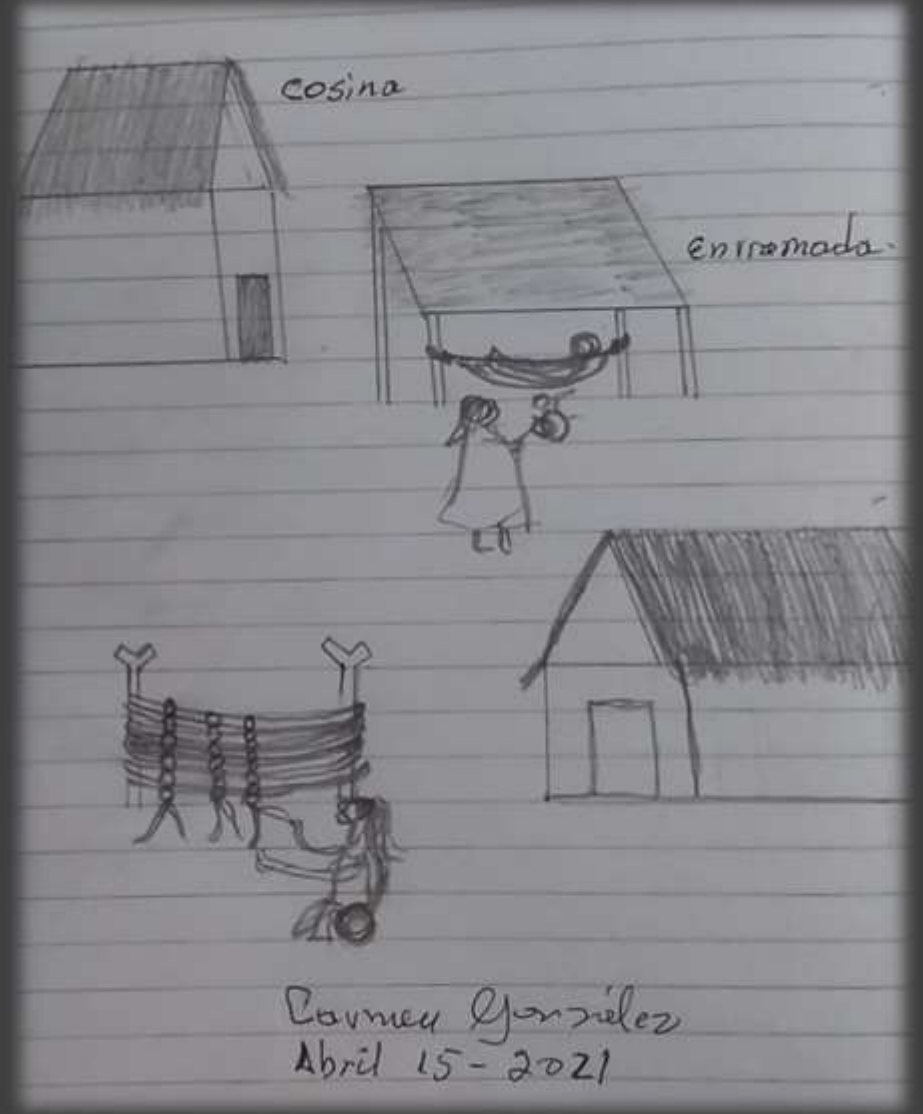 cosina
enrramada.
Carmen González
Abril 15-2021